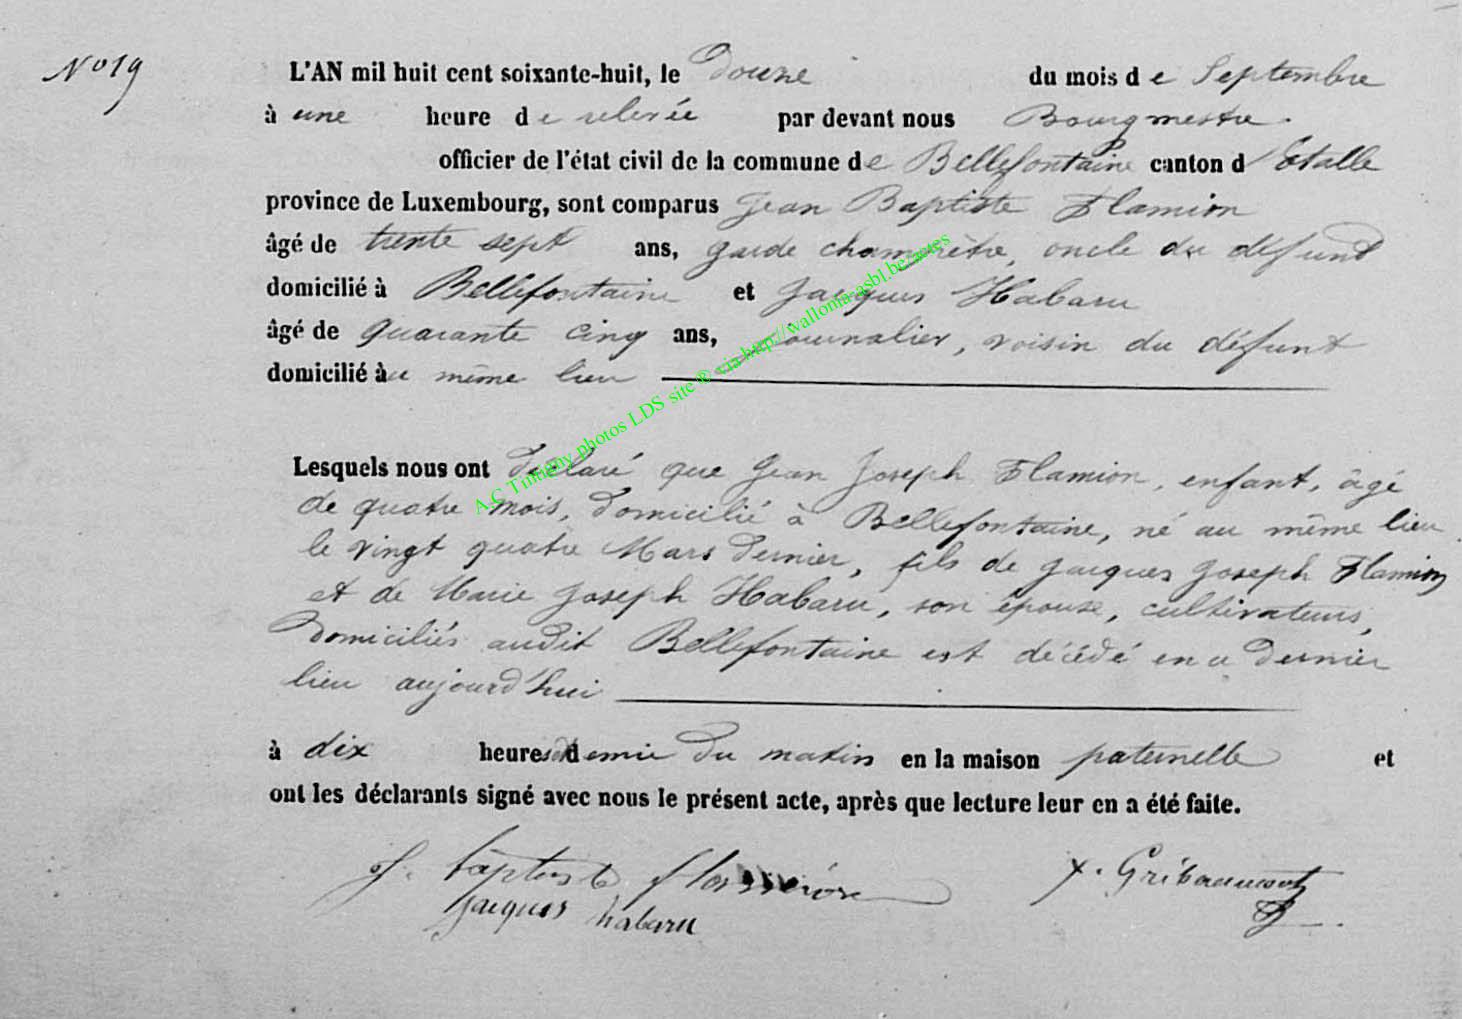 N° 19
L'AN mil huit cent soixante-huit, le Douze du mois de Septembre
à une heure de relevée par devant nous Bourgmestre.
officier de l'état civil de la commune de Bellefontaine canton d'Etalle
province de Luxembourg, sont comparus Jean Baptiste Flamion
âgé de trente sept ans, garde champêtre, oncle du défunt
domicilié à Bellefontaine et Jacques Habaru
âgé de quarante cinq ans, journalier, voisin du défunt
domicilié au même lieu
Lesquels nous ont déclaré que Jean Joseph Flamion, enfant, âgé
de quatre mois, domicilié à Bellefontaine, né au même lieu
le vingt quatre Mars dernier, fils de Jacques Joseph Flamion
et de Marie Joseph Habaru, son épouse, cultivateurs,
domiciliés audit Bellefontaine est décédé en ce dernier
lieu aujourd'hui
à dix heures et demie du matin en la maison paternelle et
ont les déclarants signé avec nous le présent acte, après que lecture leur en a été faite.
J. baptiste flamion
Jacques habaru
Gribaumont
A.C Tintigny photos LDS site ® via http://wallonia-asbl.be/actes